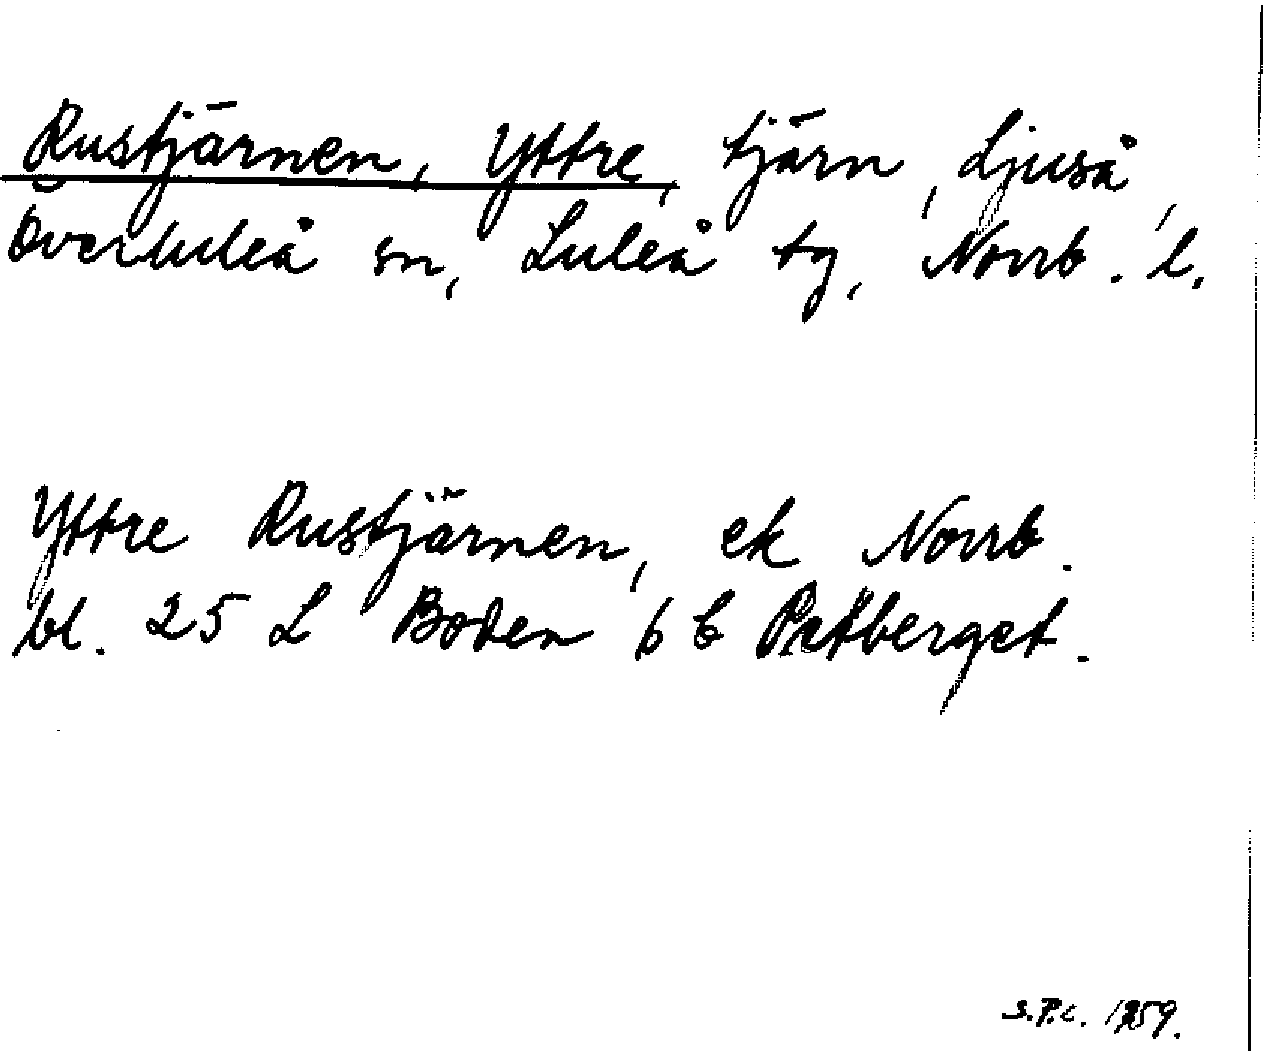 Rustjärnen, Yttre, tjärn, Ljuså,
Överluleå sn, Luleå tg, Norrb. l.
Yttre Rustjärnen, ek Norrb.
bl. 25 L Boden 6 b Pakberget.
S.P.C. 1959.